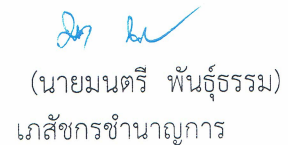 (นายมนตรี พันธุ์ธรรม)
เภสัชกรชำนาญการ